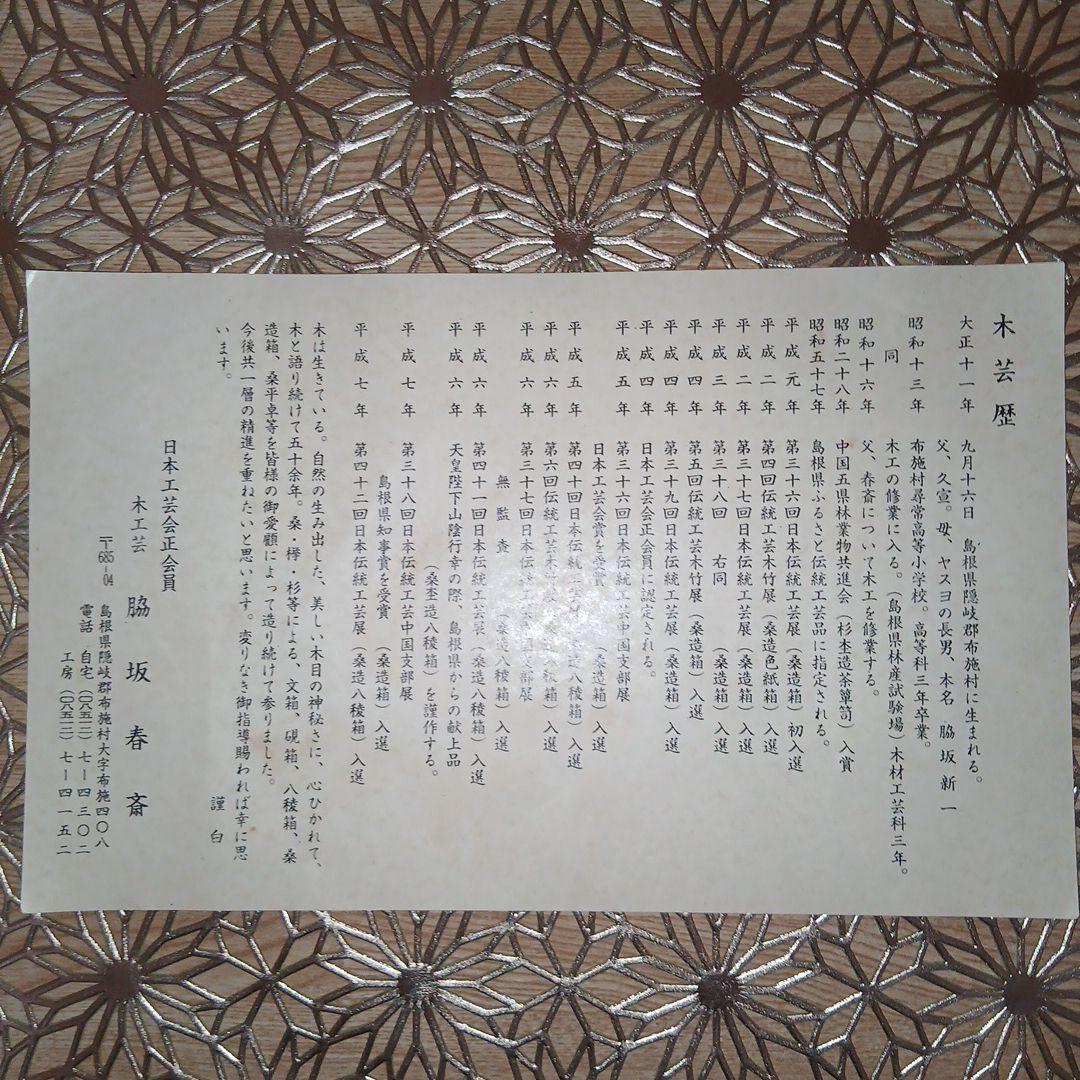 木芸歴
大正十一年 九月十六日 島根県隠岐郡布施村に生まれる。
父、久宣。母、ヤスヨの長男、本名 脇坂新一
昭和十三年 布施村尋常高等小学校。高等科三年卒業。
同 木工の修業に入る。(島根県林産試験場)木材工芸科三年。
昭和十六年 父、春斎について木工を修業する。
昭和二十八年 中国五県林業物共進会(杉杢造茶簞笥)入賞
昭和五十七年 島根県ふるさと伝統工芸品に指定される。
平成元年 第三十六回日本伝統工芸展(桑造箱)初入選
平成二年 第四回伝統工芸木竹展(桑造色紙箱)入選
平成二年 第三十七回日本伝統工芸展(桑造箱)入選
平成三年 第三十八回 右同(桑造箱)入選
平成四年 第五回伝統工芸木竹展(桑造箱)入選
平成四年 第三十九回日本伝統工芸展(桑造箱)入選
平成四年 日本工芸会正会員に認定される。
平成五年 第三十六回日本伝統工芸中国支部展
日本工芸会賞を受賞(桑造箱)入選
平成五年 第四十回日本伝統工芸展(桑造八稜箱)入選
平成六年 第六回伝統工芸木竹展 稜箱)入選
平成六年 第三十七回日本伝統工 国支部展
無監査 造八稜箱)入選
平成六年 第四十一回日本伝統工芸展(桑造八稜箱)入選
平成六年 天皇陛下山陰行幸の際、島根県からの献上品
(桑杢造八稜箱)を謹作する。
平成七年 第三十八回日本伝統工芸中国支部展
島根県知事賞を受賞(桑造箱)入選
平成七年 第四十二回日本伝統工芸展(桑造八稜箱)入選
木は生きている。自然の生み出した、美しい木目の神秘さに、心ひかれて、
木と語り続けて五十余年。桑・欅・杉等による、文箱、硯箱、八稜箱、桑
造箱、桑平卓等を皆様の御愛顧によって造り続けて参りました。
今後共一層の精進を重ねたいと思います。変りなき御指導賜われば幸に思
います。
謹白
日本工芸会正会員
木工芸 脇坂春斎
〒685-04 島根県隠岐郡布施村大字布施四〇八
電話 自宅(〇八五一二)七―四三〇二
工房(〇八五一二)七―四一五二